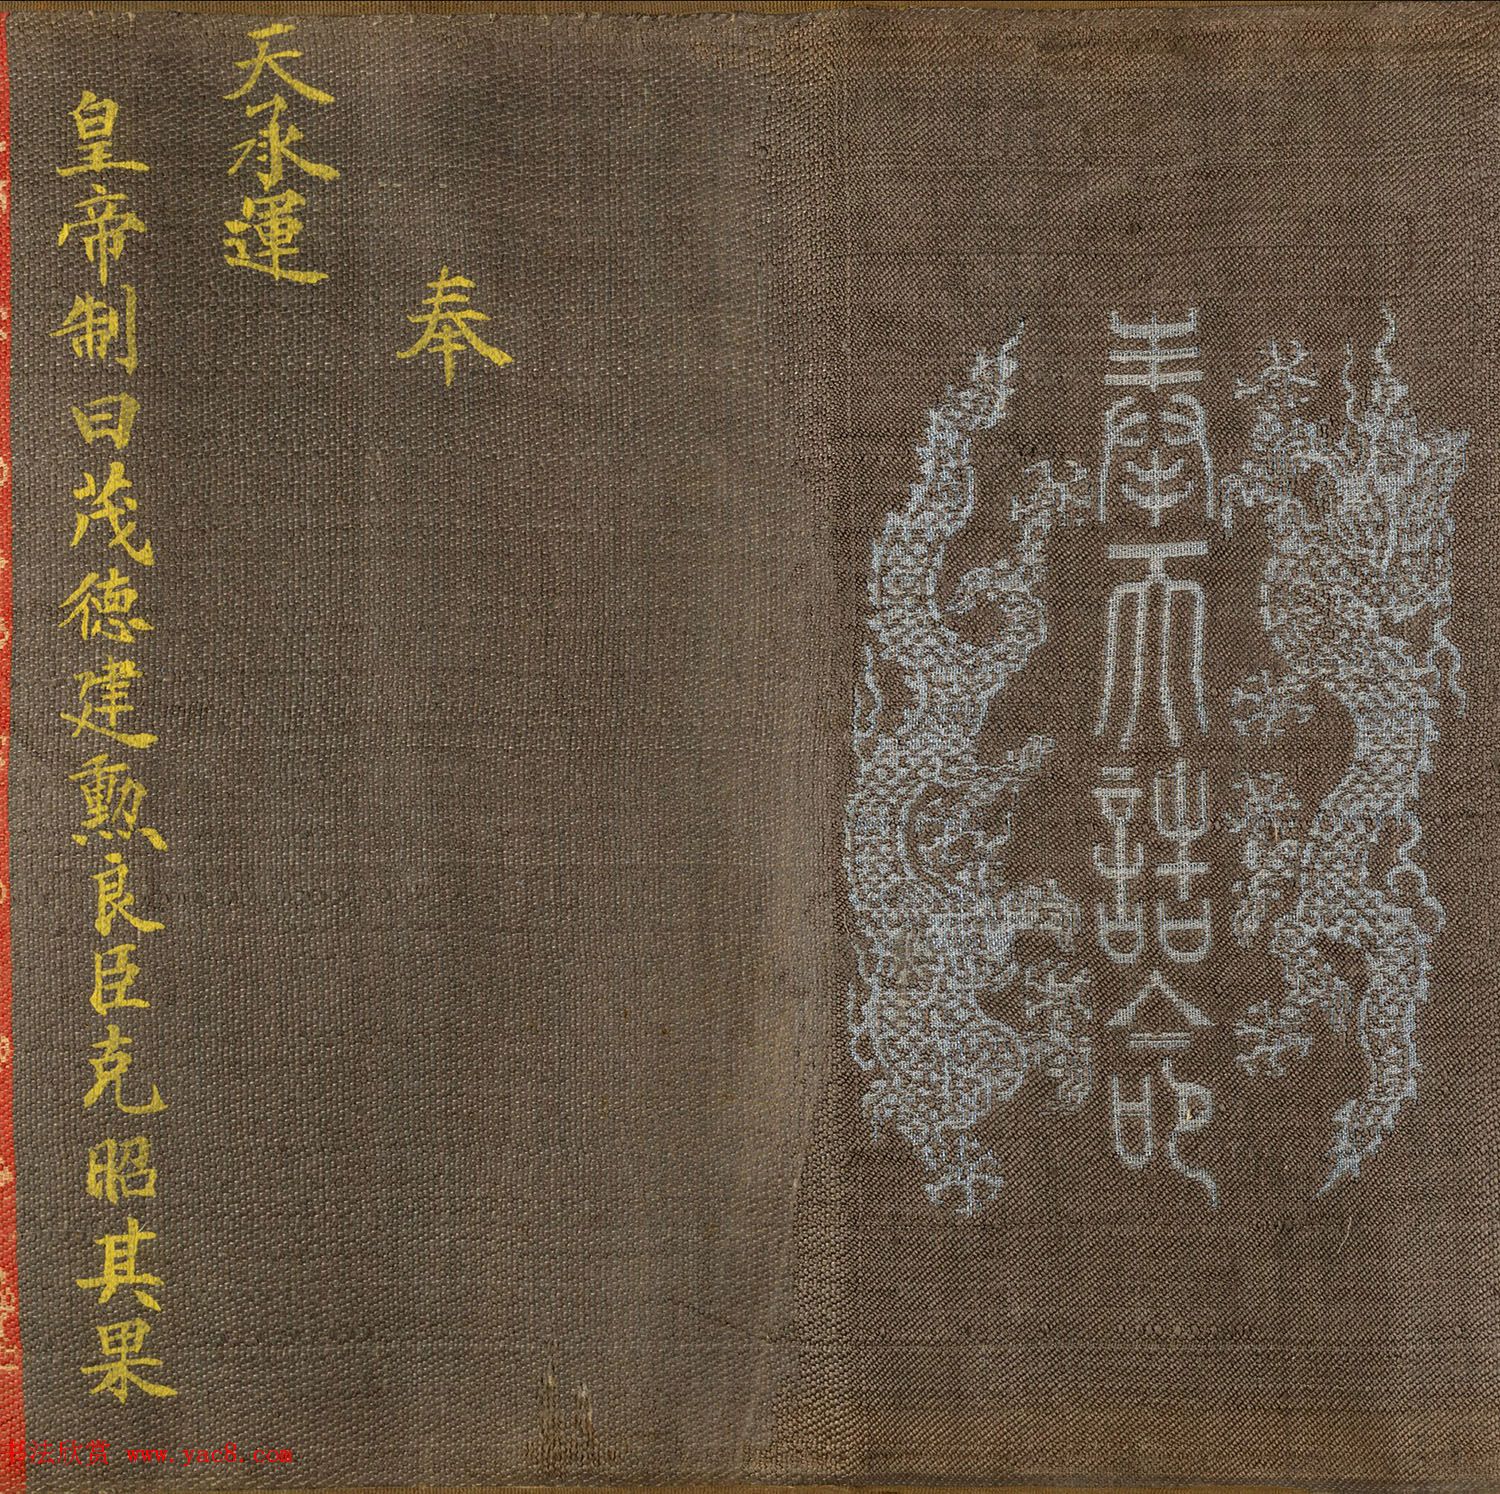 奉天誥命
奉
天承運
皇帝制曰茂德建勲良臣克昭其果
书法欣赏 www.yac8.com